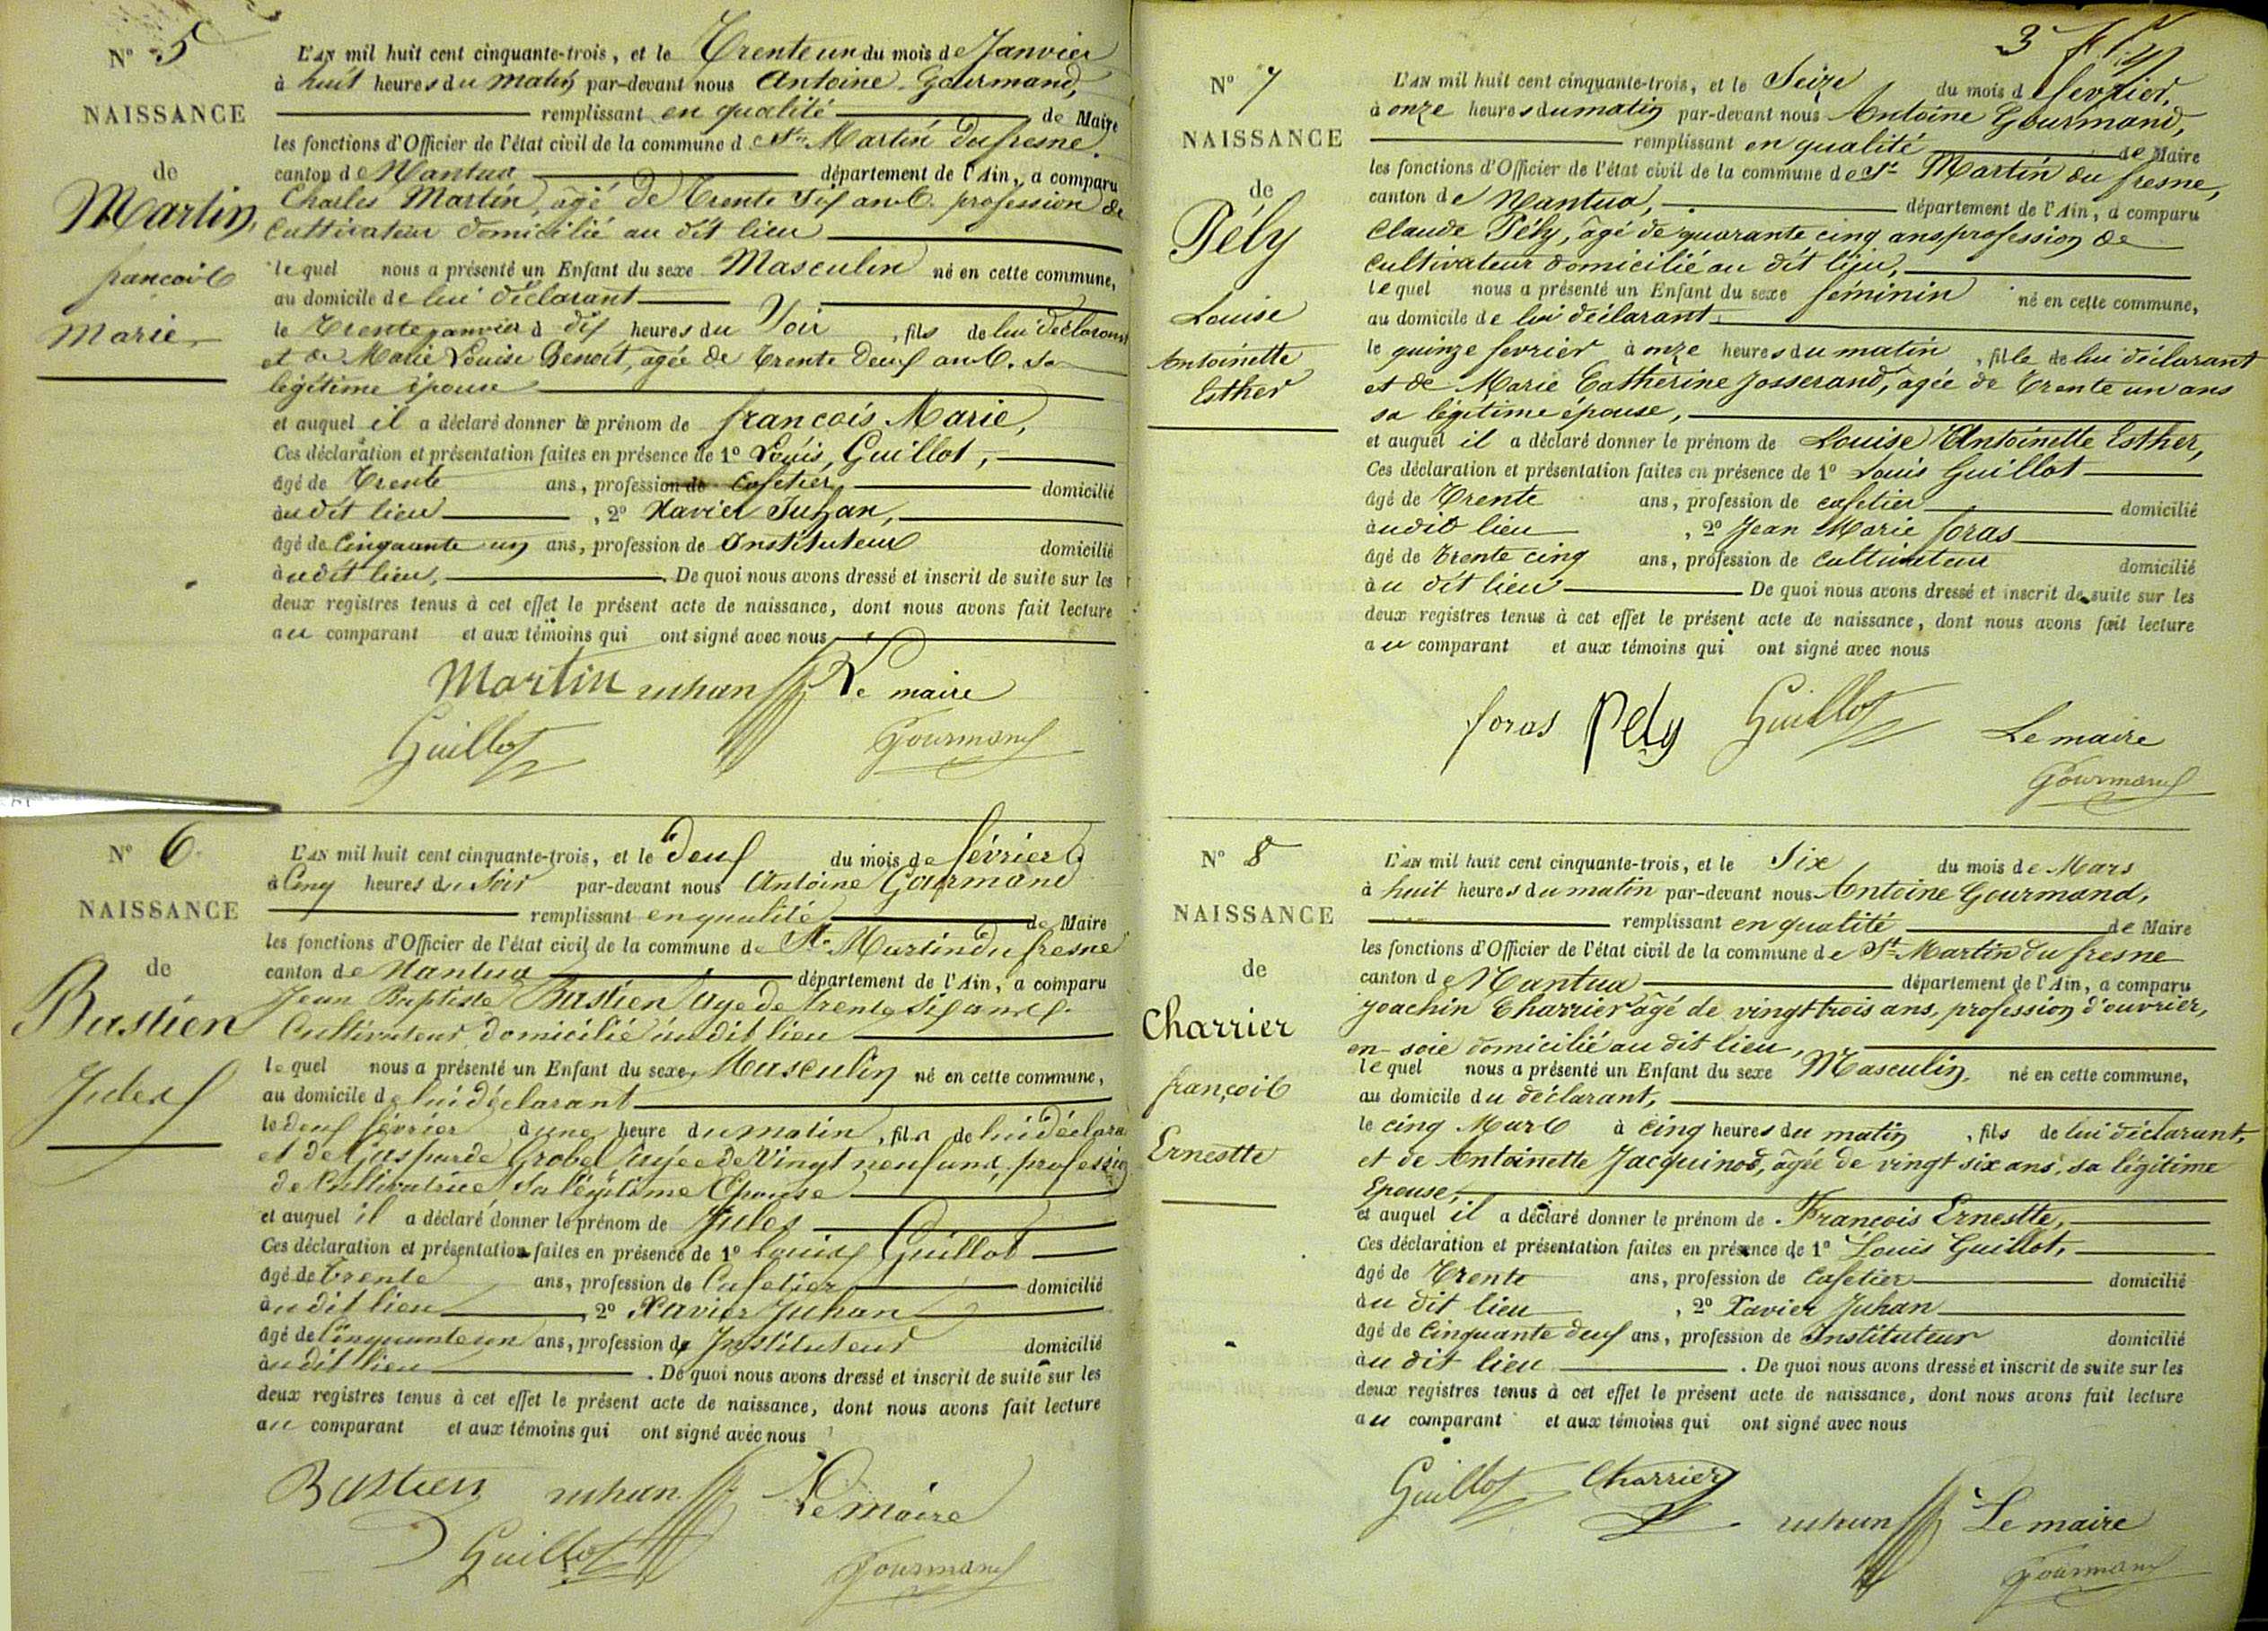 Nº 5
NAISSANCE
de
Martin,
françois
Marie
L'AN mil huit cent cinquante-trois, et le Trente un du mois de Janvier
à huit heures du matin par-devant nous Antoine Gourmand,
remplissant en qualité de Maire
les fonctions d'Officier de l'état civil de la commune d St Martin Dufresne.
canton de Nantua département de l'Ain, a comparu
Charles Martin, âgé de Trente Six ans. profession de
Cultivateur domicilié au dit lieu
lequel nous a présenté un Enfant du sexe Masculin né en cette commune,
au domicile de lui déclarant
le Trente janvier à dix heures du Soir, fils de lui déclarant
et de Marie Louise Benoît, agée de Trente Deux ans. Sa
légitime épouse
et auquel il a déclaré donner le prénom de françois Marie,
Ces déclaration et présentation faites en présence de 1º Louis, Guillot,
âgé de Trente ans, profession de Cafetier, domicilié
audit lieu, 2º Xavier Juhan,
âgé de Cinquante un ans, profession de Instituteur domicilié
au dit lieu, . De quoi nous avons dressé et inscrit de suite sur les
deux registres tenus à cet effet le présent acte de naissance, dont nous avons fait lecture
au comparant et aux témoins qui ont signé avec nous
Martin juhan Le maire
Guillot Gourmand
Nº 6
NAISSANCE
de
Bastien
Jules
L'AN mil huit cent cinquante-trois, et le deux du mois de février
à Cinq heures du Soir par-devant nous Antoine Gourmand
remplissant en qualité de Maire
les fonctions d'Officier de l'état civil de la commune de St Martin du fresne
canton de Nantua département de l'Ain, a comparu
Jean Baptiste Bastien âgé de trente six ans
Cultivateur domicilié audit lieu
lequel nous a présenté un Enfant du sexe Masculin né en cette commune,
au domicile de lui déclarant
le deux février à une heure du matin, fils de lui déclara
et de Gasparde Grobel agée de Vingt neuf ans, profession
de Cultivatrice Sa légitime Epouse
et auquel il a déclaré donner le prénom de Jules
Ces déclaration et présentation faites en présence de 1º Louis Guillot
âgé de Trente ans, profession de Cafetier domicilié
audit lieu, 2º Xavier Juhan
âgé de Cinquante un ans, profession de Instituteur domicilié
audit lieu . De quoi nous avons dressé et inscrit de suite sur les
deux registres tenus à cet effet le présent acte de naissance, dont nous avons fait lecture
au comparant et aux témoins qui ont signé avec nous
Bastien juhan Le Maire
Guillot Gourmand
3
Nº 7
NAISSANCE
de
Pély
Louise
Antoinette
Esther
L'AN mil huit cent cinquante-trois, et le Seize du mois d février,
à onze heures du matin par-devant nous Antoine Gourmand,
remplissant en qualité de Maire
les fonctions d'Officier de l'état civil de la commune de St Martin du fresne,
canton de Nantua, département de l'Ain, a comparu
Claude Pély, âgé de quarante cinq ans profession de
Cultivateur domicilié au dit lieu,
lequel nous a présenté un Enfant du sexe féminin né en cette commune,
au domicile de lui déclarant,
le quinze fevrier à onze heures du matin, fille de lui déclarant
et de Marie Catherine Josserand, agée de Trente un ans
sa légitime épouse,
et auquel il a déclaré donner le prénom de Louise Antoinette Esther,
Ces déclaration et présentation faites en présence de 1º Louis Guillot
âgé de Trente ans, profession de cafetier domicilié
audit lieu, 2º Jean Marie foras
âgé de Trente cinq ans, profession de Cultivateur domicilié
au dit lieu De quoi nous avons dressé et inscrit de suite sur les
deux registres tenus à cet effet le présent acte de naissance, dont nous avons fait lecture
au comparant et aux témoins qui ont signé avec nous
foras Pely Guillot Le maire
Gourmand
Nº 8
NAISSANCE
de
Charrier
françois
Ernestte
L'AN mil huit cent cinquante-trois, et le Six du mois de Mars
à huit heures du matin par-devant nous Antoine Gourmand,
remplissant en qualité de Maire
les fonctions d'Officier de l'état civil de la commune de St Martin du fresne
canton de Nantua département de l'Ain, a comparu
Joachin Charrier âgé de vingt trois ans, profession d'ouvrier,
en soie domicilié au dit lieu,
lequel nous a présenté un Enfant du sexe Masculin, né en cette commune,
au domicile du déclarant,
le cinq Mars à cinq heures du matin, fils de lui déclarant,
et de Antoinette Jacquinod, agée de vingt six ans, sa légitime
Epouse,
et auquel il a déclaré donner le prénom de François Ernestte,
Ces déclaration et présentation faites en présence de 1º Louis Guillot,
âgé de Trente ans, profession de Cafetier domicilié
au dit lieu, 2º Xavier Juhan
âgé de Cinquante deux ans, profession de Instituteur domicilié
au dit lieu . De quoi nous avons dressé et inscrit de suite sur les
deux registres tenus à cet effet le présent acte de naissance, dont nous avons fait lecture
au comparant et aux témoins qui ont signé avec nous
Guillot Charrier juhan Le maire
Gourmand